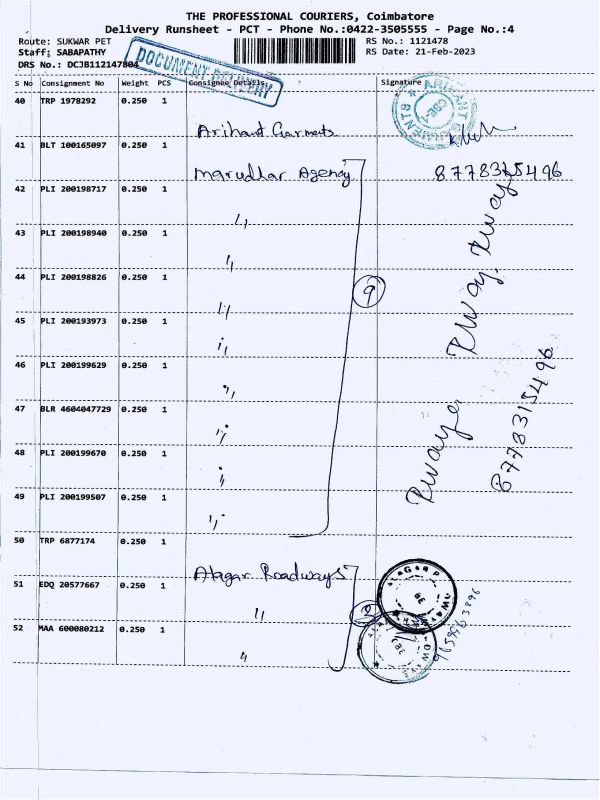 THE PROFESSIONAL COURIERS, Coimbatore
Delivery Runsheet - PCT - Phone No.:0422-3505555 - Page No.:4
Route: SUKWAR PET
RS No.: 1121478
Staff; SABAPATHY
RS Date: 21-Feb-2023
DRS No.: DCJB112147804
DOCUMENT DELIVERY
S No Consignment No Weight PCS Consignee Details Signature
40 TRP 1978292 0.250 1
Arihant Garments
ARIHANT GARMENTS
CBE-1
41 BLT 100165097 0.250 1
Marudhar Agency 8778315496
42 PLI 200198717 0.250 1
〃
43 PLI 200198940 0.250 1
〃
44 PLI 200198826 0.250 1
〃 9
45 PLI 200193973 0.250 1
〃
46 PLI 200199629 0.250 1
〃
47 BLR 4604047729 0.250 1
〃
8778315496
48 PLI 200199670 0.250 1
〃
49 PLI 200199507 0.250 1
〃
50 TRP 6877174 0.250 1
Alagar Roadways
51 EDQ 20577667 0.250 1
〃 2
52 MAA 600080212 0.250 1
〃